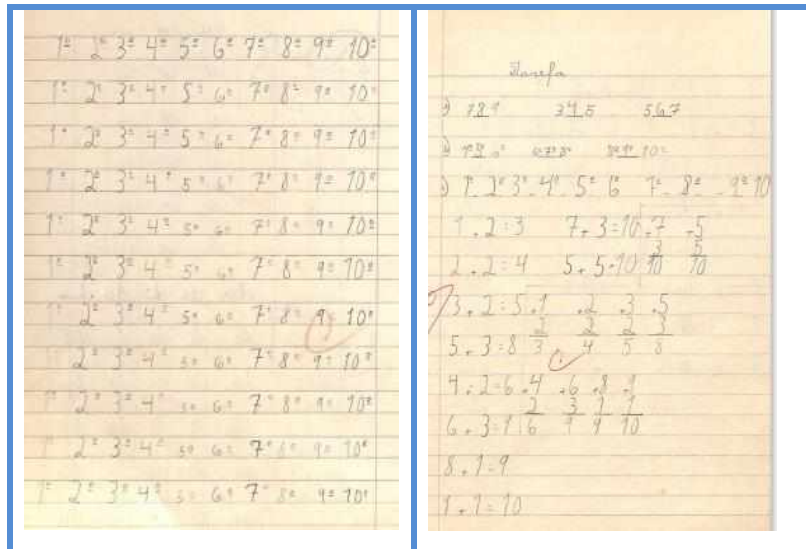 1º 2º 3º 4º 5º 6º 7º 8º 9º 10º
1º 2º 3º 4º 5º 6º 7º 8º 9º 10º
1º 2º 3º 4º 5º 6º 7º 8º 9º 10º
1º 2º 3º 4º 5º 6º 7º 8º 9º 10º
1º 2º 3º 4º 5º 6º 7º 8º 9º 10º
1º 2º 3º 4º 5º 6º 7º 8º 9º 10º
1º 2º 3º 4º 5º 6º 7º 8º 9º 10º
1º 2º 3º 4º 5º 6º 7º 8º 9º 10º
1º 2º 3º 4º 5º 6º 7º 8º 9º 10º
1º 2º 3º 4º 5º 6º 7º 8º 9º 10º
1º 2º 3º 4º 5º 6º 7º 8º 9º 10º
Tarefa
345 567
10º
1º 2º 3º 4º 5º 6º 7º 8º 9º 10
1+2=3 7+3=10 +7 +5
3 5
2+2=4 5+5=10 10 10
3+2=5 +1 +2 +3 +5
2 2 2 3
5+3=8 3 4 5 8
4+2=6 +4 +6 +8
2 3 1 1
6 9 9 10
8+1=9